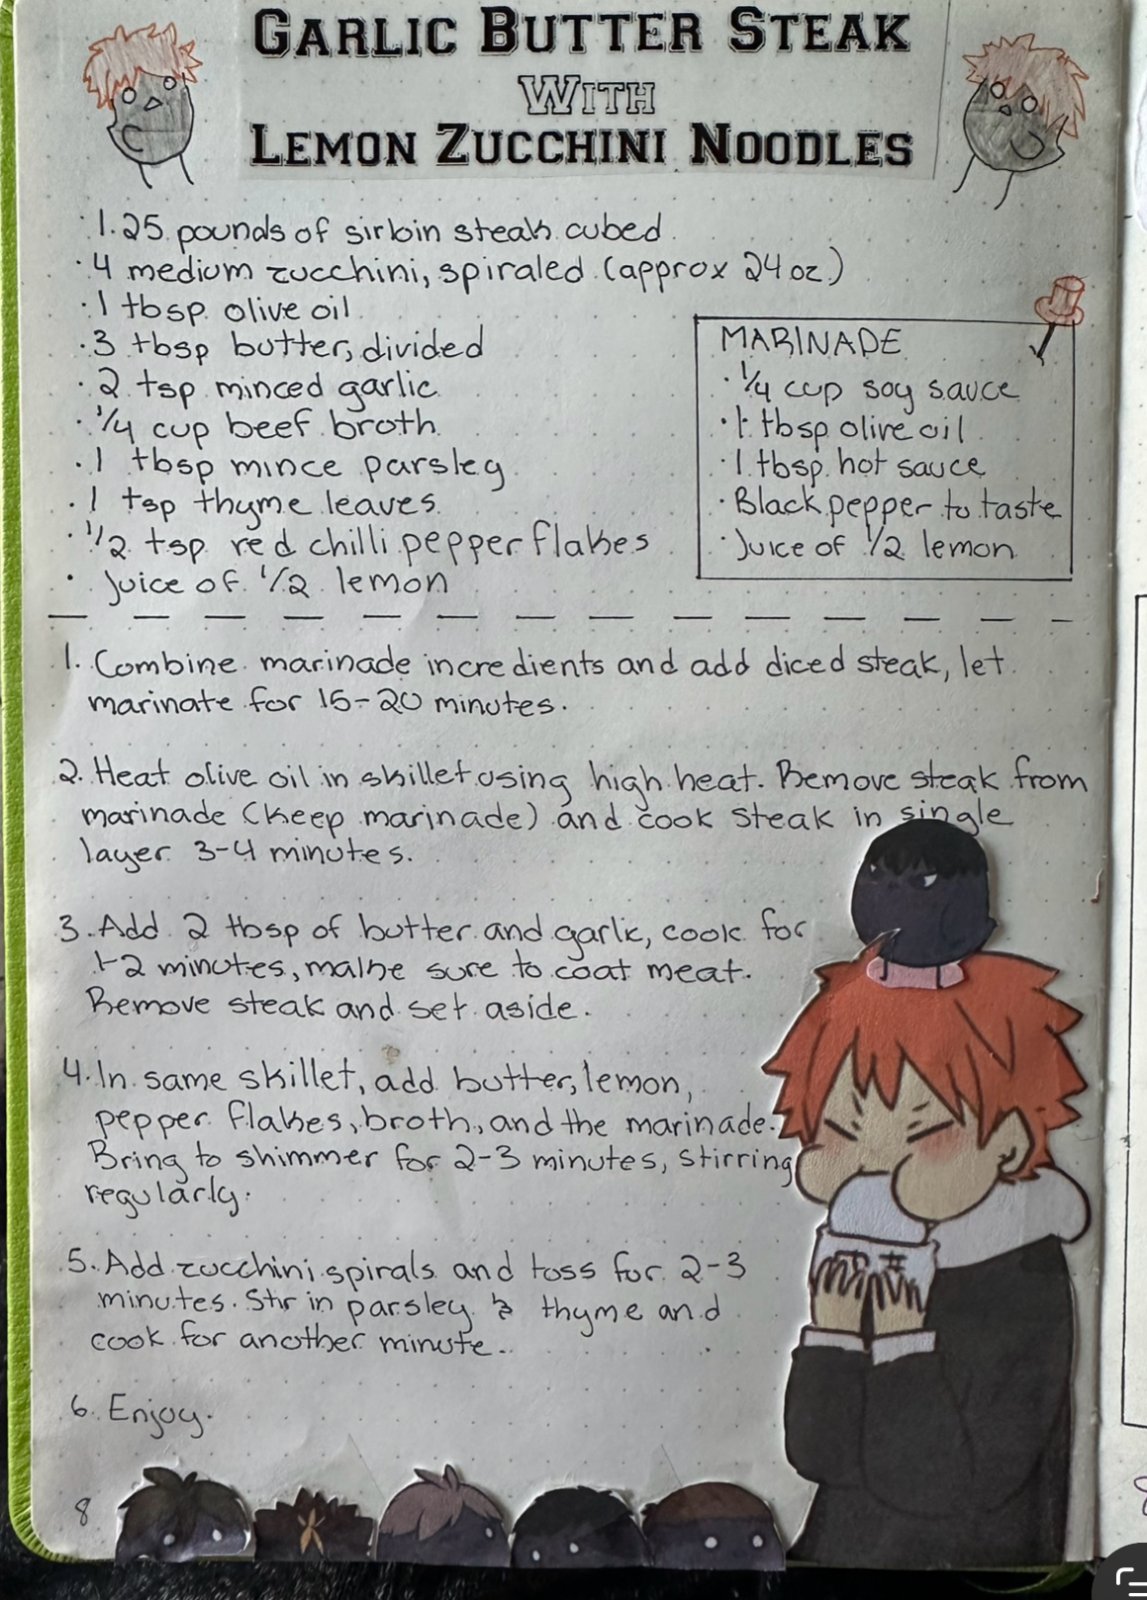 GARLIC BUTTER STEAK
WITH
LEMON ZUCCHINI NOODLES
· 1.25 pounds of sirloin steak cubed
· 4 medium zucchini, spiraled (approx 24 oz.)
· 1 tbsp olive oil
· 3 tbsp butter, divided
· 2 tsp minced garlic
· 1/4 cup beef broth
· 1 tbsp mince parsley
· 1 tsp thyme leaves
· 1/2 tsp red chilli pepper flakes
· juice of 1/2 lemon
MARINADE
· 1/4 cup soy sauce
· 1 tbsp olive oil
· 1 tbsp hot sauce
· Black pepper to taste
· Juice of 1/2 lemon
1. Combine marinade incredients and add diced steak, let
marinate for 15-20 minutes.
2. Heat olive oil in skillet using high heat. Remove steak from
marinade (keep marinade) and cook steak in single
layer 3-4 minutes.
3. Add 2 tbsp of butter and garlic, cook for
1-2 minutes, make sure to coat meat.
Remove steak and set aside.
4. In same skillet, add butter, lemon,
pepper flakes, broth, and the marinade.
Bring to shimmer for 2-3 minutes, stirring
regularly.
5. Add zucchini spirals and toss for 2-3
minutes. Stir in parsley & thyme and
cook for another minute.
6. Enjoy.
8